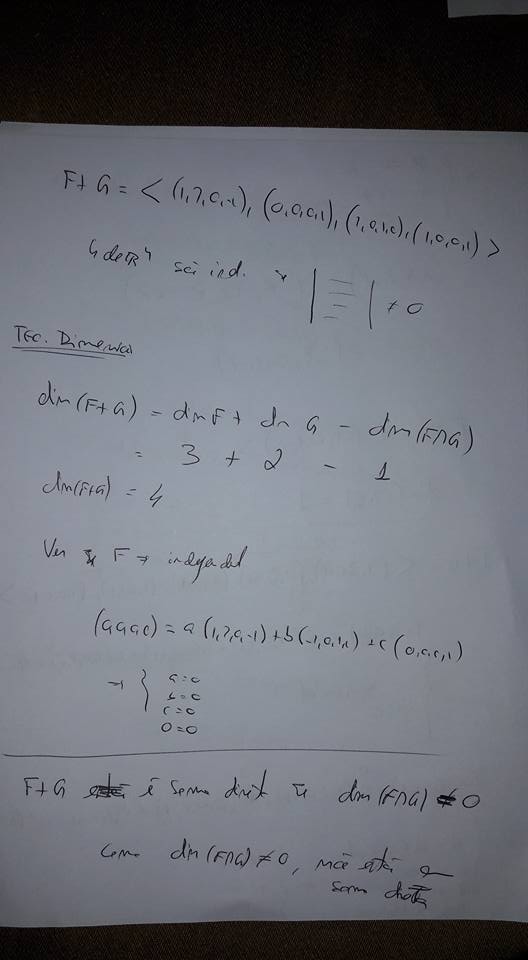 F+G = < (1,2,0,-1), (0,0,0,1), (1,0,1,0), (1,0,0,1) >
4 de ℝ⁴ são ind. | | ≠ 0
Teo. Dimensão
dim(F+G) = dim F + dim G - dim(F∩G)
= 3 + 2 - 1
dim(F+G) = 4
Ver se F → independ
(0,0,0,0) = a(1,2,0,-1) + b(-1,0,1,0) + c(0,0,0,1)
→ { a=0
b=0
c=0
0=0
F+G é soma direta se dim(F∩G) = 0
Como dim(F∩G) ≠ 0, não está em
soma direta